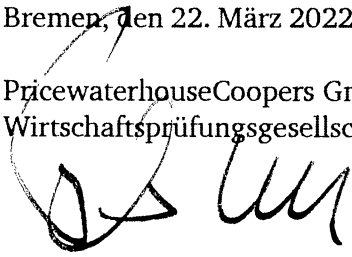 Bremen, den 22. März 2022
PricewaterhouseCoopers G
Wirtschaftsprüfungsgesellsc